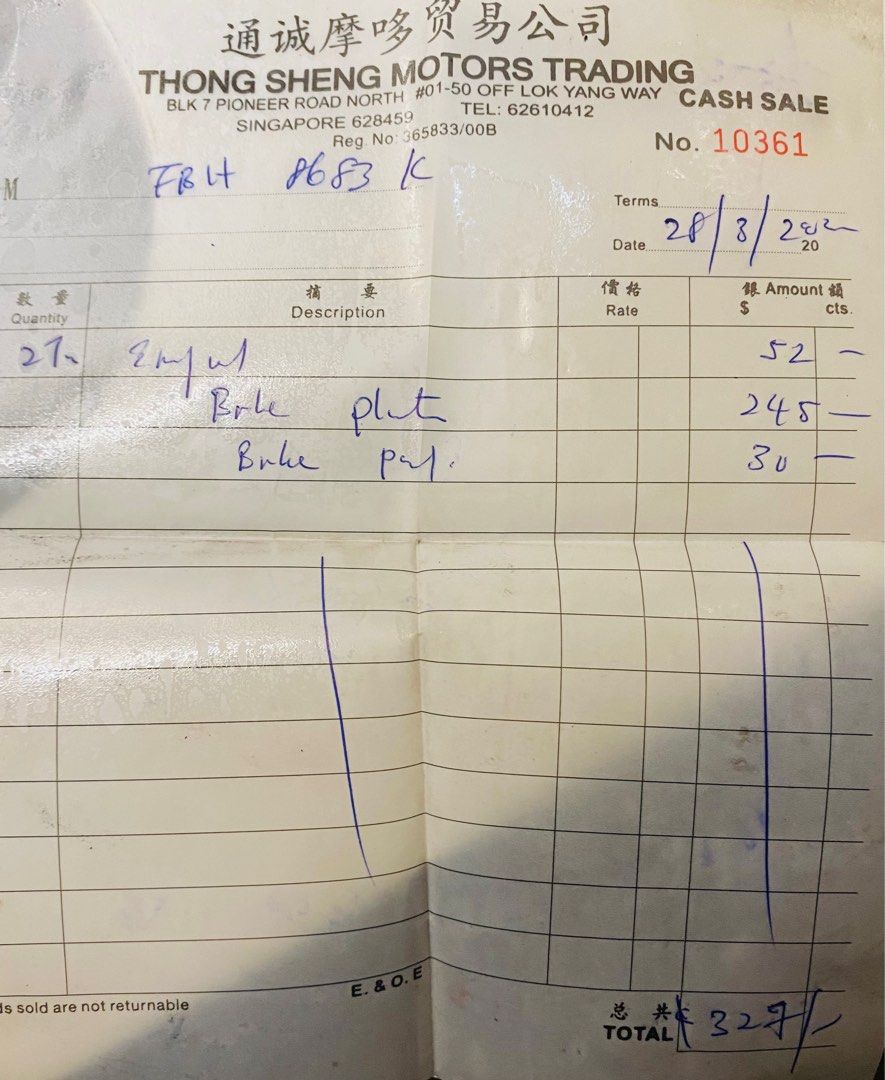 通诚摩哆贸易公司
THONG SHENG MOTORS TRADING
BLK 7 PIONEER ROAD NORTH #01-50 OFF LOK YANG WAY
SINGAPORE 628459 TEL: 62610412
Reg. No: 365833/00B
CASH SALE
No. 10361
M FBH 8683 K
Terms
Date 28/8/2022 20
数量 摘要 價格 銀 Amount 額
Quantity Description Rate $ cts.
52 —
Brke 245 —
Brke 30 —
ds sold are not returnable
E. & O. E
总共
TOTAL 327/-